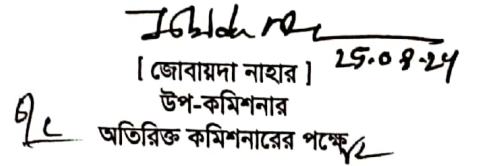 ২৫.০৪.২৪
[ জোবায়দা নাহার ]
উপ-কমিশনার
অতিরিক্ত কমিশনারের পক্ষে